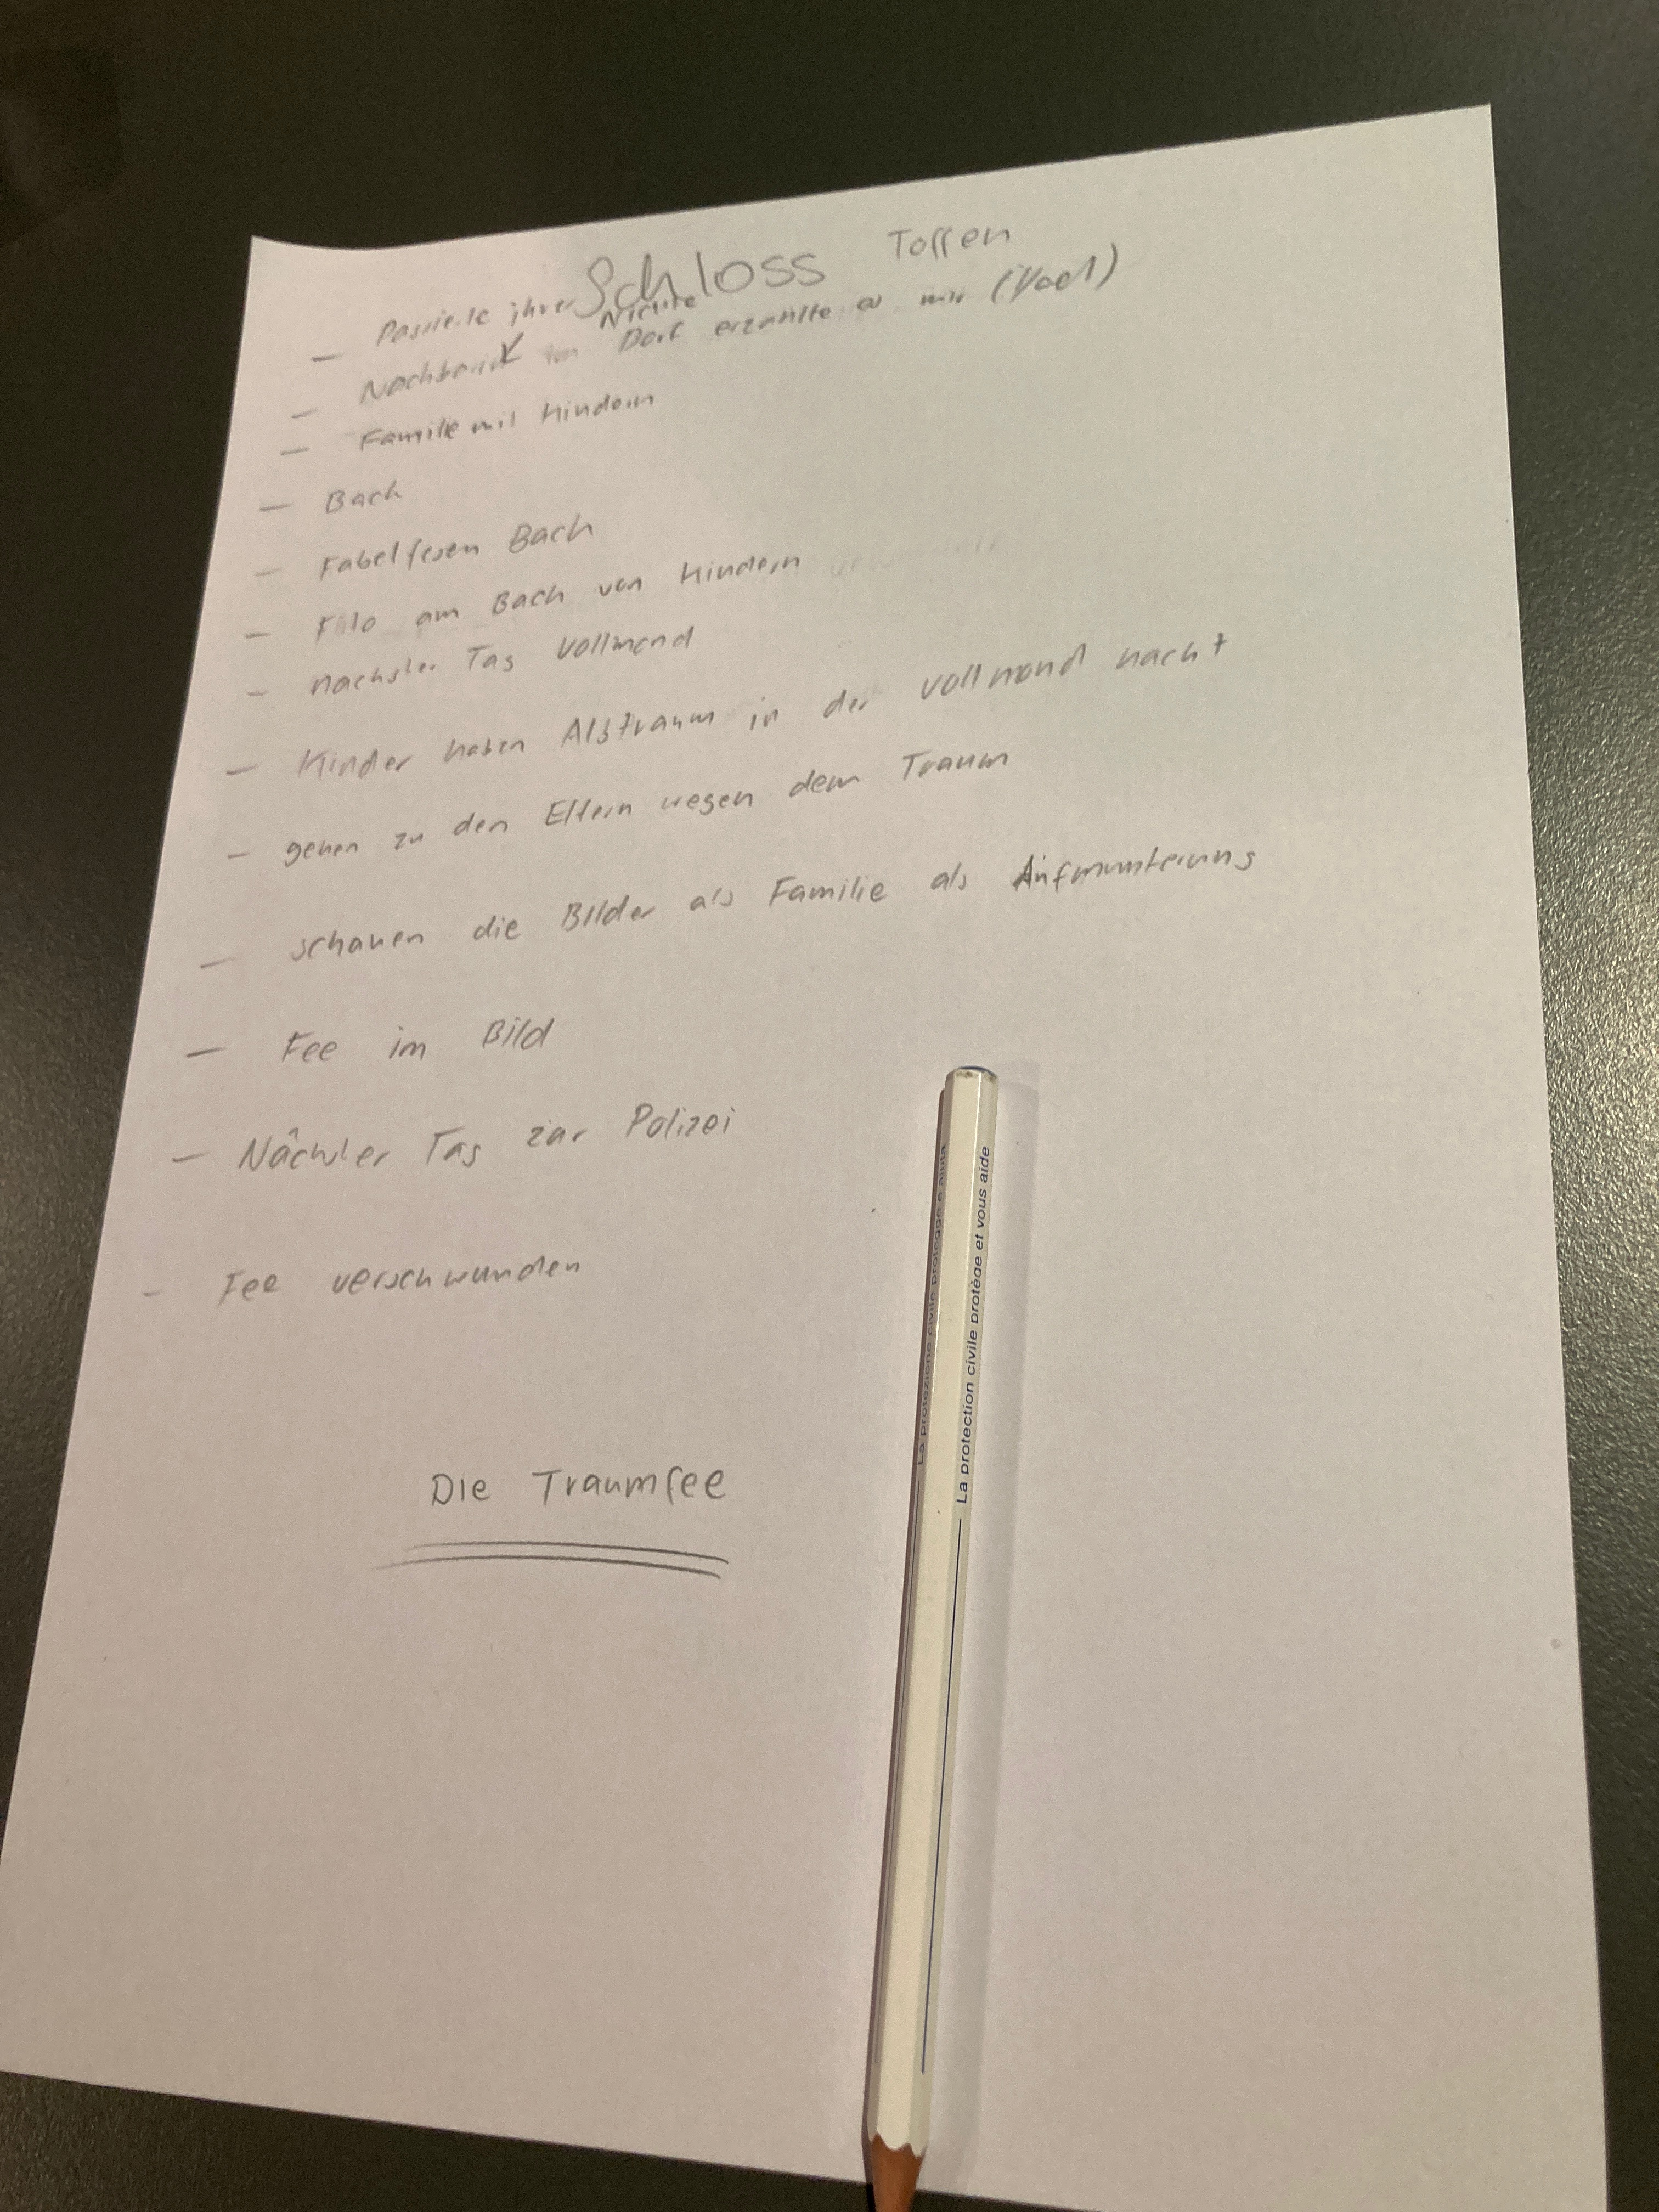 Schloss Toffen
– Passierte ihrer Nichte
– Nachbarin im Dorf erzählte es mir
– Familie mit Kindern
– Bach
– Fabelfesen Bach
– Foto am Bach von Kindern
– nächster Tag Vollmond
– Kinder haben Albtraum in der vollmond nacht
– gehen zu den Eltern wegen dem Traum
– schauen die Bilder als Familie als Aufmunterung
– Fee im Bild
– Nächster Tag zur Polizei
– Fee verschwunden
Die Traumfee
La protezione civile protegge e aiuta
La protection civile protège et vous aide